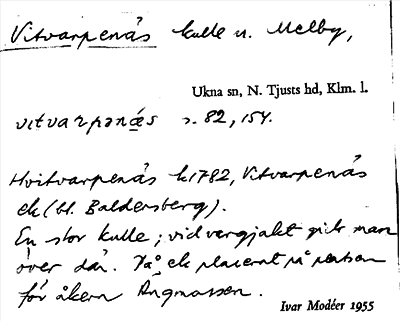 Vitvarpenäs kulle n. Melby,
Ukna sn, N. Tjusts hd, Klm. l.
vɪtvarpənǽs s. 82, 154.
Hvitvarpenäs k1782, Vitvarpenäs
ek (bl. Baldersberg).
En stor kulle; vid vargjakt gick man
över där. På ek placerat på kartan
för åkern Ängmossen.
Ivar Modéer 1955